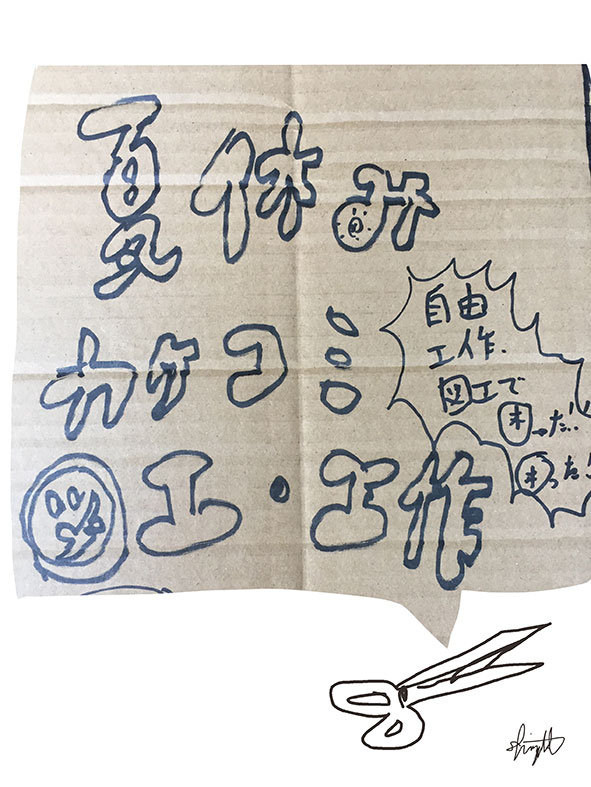 夏休み
カケコミ
図工・工作
自由
工作、
図工で
困った!!
困った!